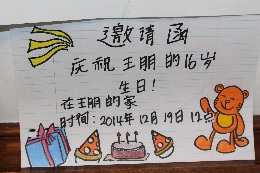 邀请函
庆祝王朋的16岁
生日！
在王朋的家
时间：2014年12月19日12点